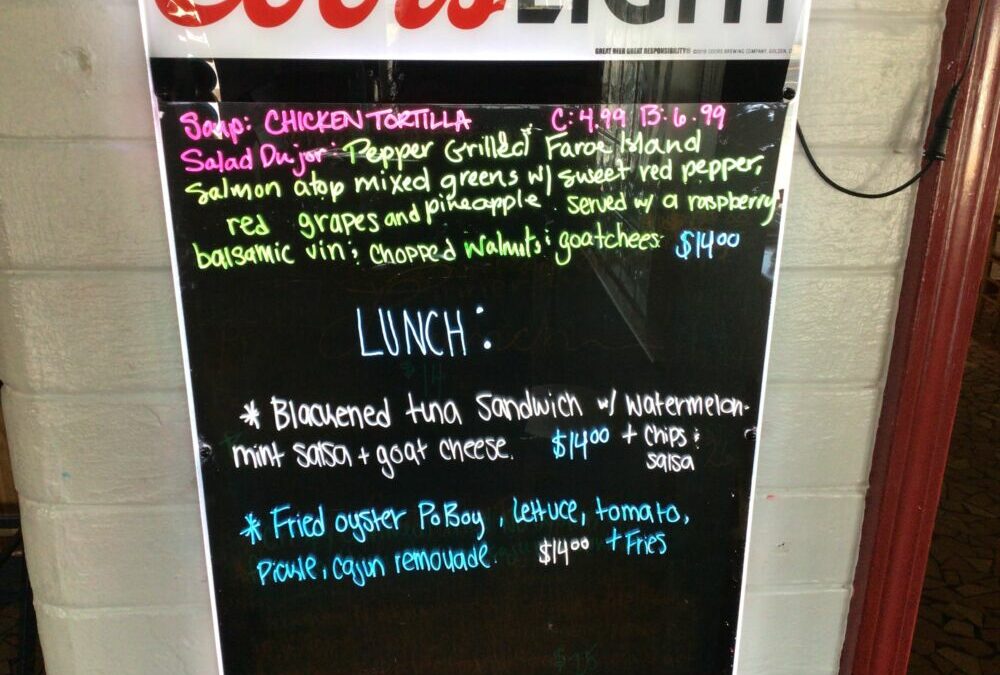 Coors LIGHT
GREAT BEER GREAT RESPONSIBILITY®
Soup: CHICKEN TORTILLA C: 4.99 B: 6.99
Salad Dujor: Pepper Grilled Faroe Island
Salmon atop mixed greens w/ sweet red pepper,
red grapes and pineapple. Served w/ a raspberry
balsamic vin; chopped walnuts; goatchees $14.00
LUNCH:
* Blackened tuna Sandwich w/ Watermelon-
mint salsa + goat cheese. $14.00 + chips &
salsa
* Fried oyster PoBoy, lettuce, tomato,
Pickle, cajun remoulade. $14.00 + Fries